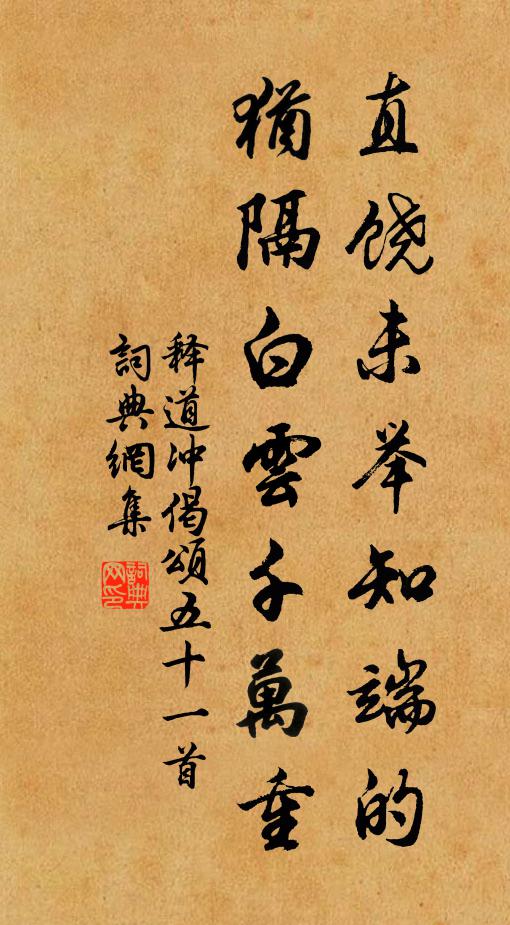 直饶未举知端的
猶隔白雲千萬重
释道冲偈頌五十一首
詞典網集
詞典网印